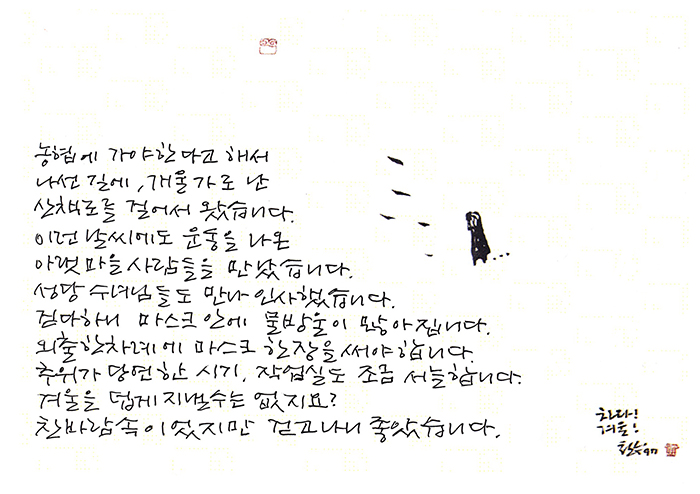 농협에 가야한다고 해서
나선 길에, 개울가로 난
산책로를 걸어서 왔습니다.
이런 날씨에도 운동을 나온
아랫마을 사람들을 만났습니다.
성당 수녀님들도 만나 인사했습니다.
걷다하니 마스크 안에 물방울이 모찮아집니다.
외출 한차례에 마스크 한장을 써야합니다.
추위가 당연한 시기, 작업실도 조금 서늘합니다.
겨울을 덥게 지낼수는 없지요?
찬바람속이었지만 걷고나니 좋았습니다.
차다!
겨울!